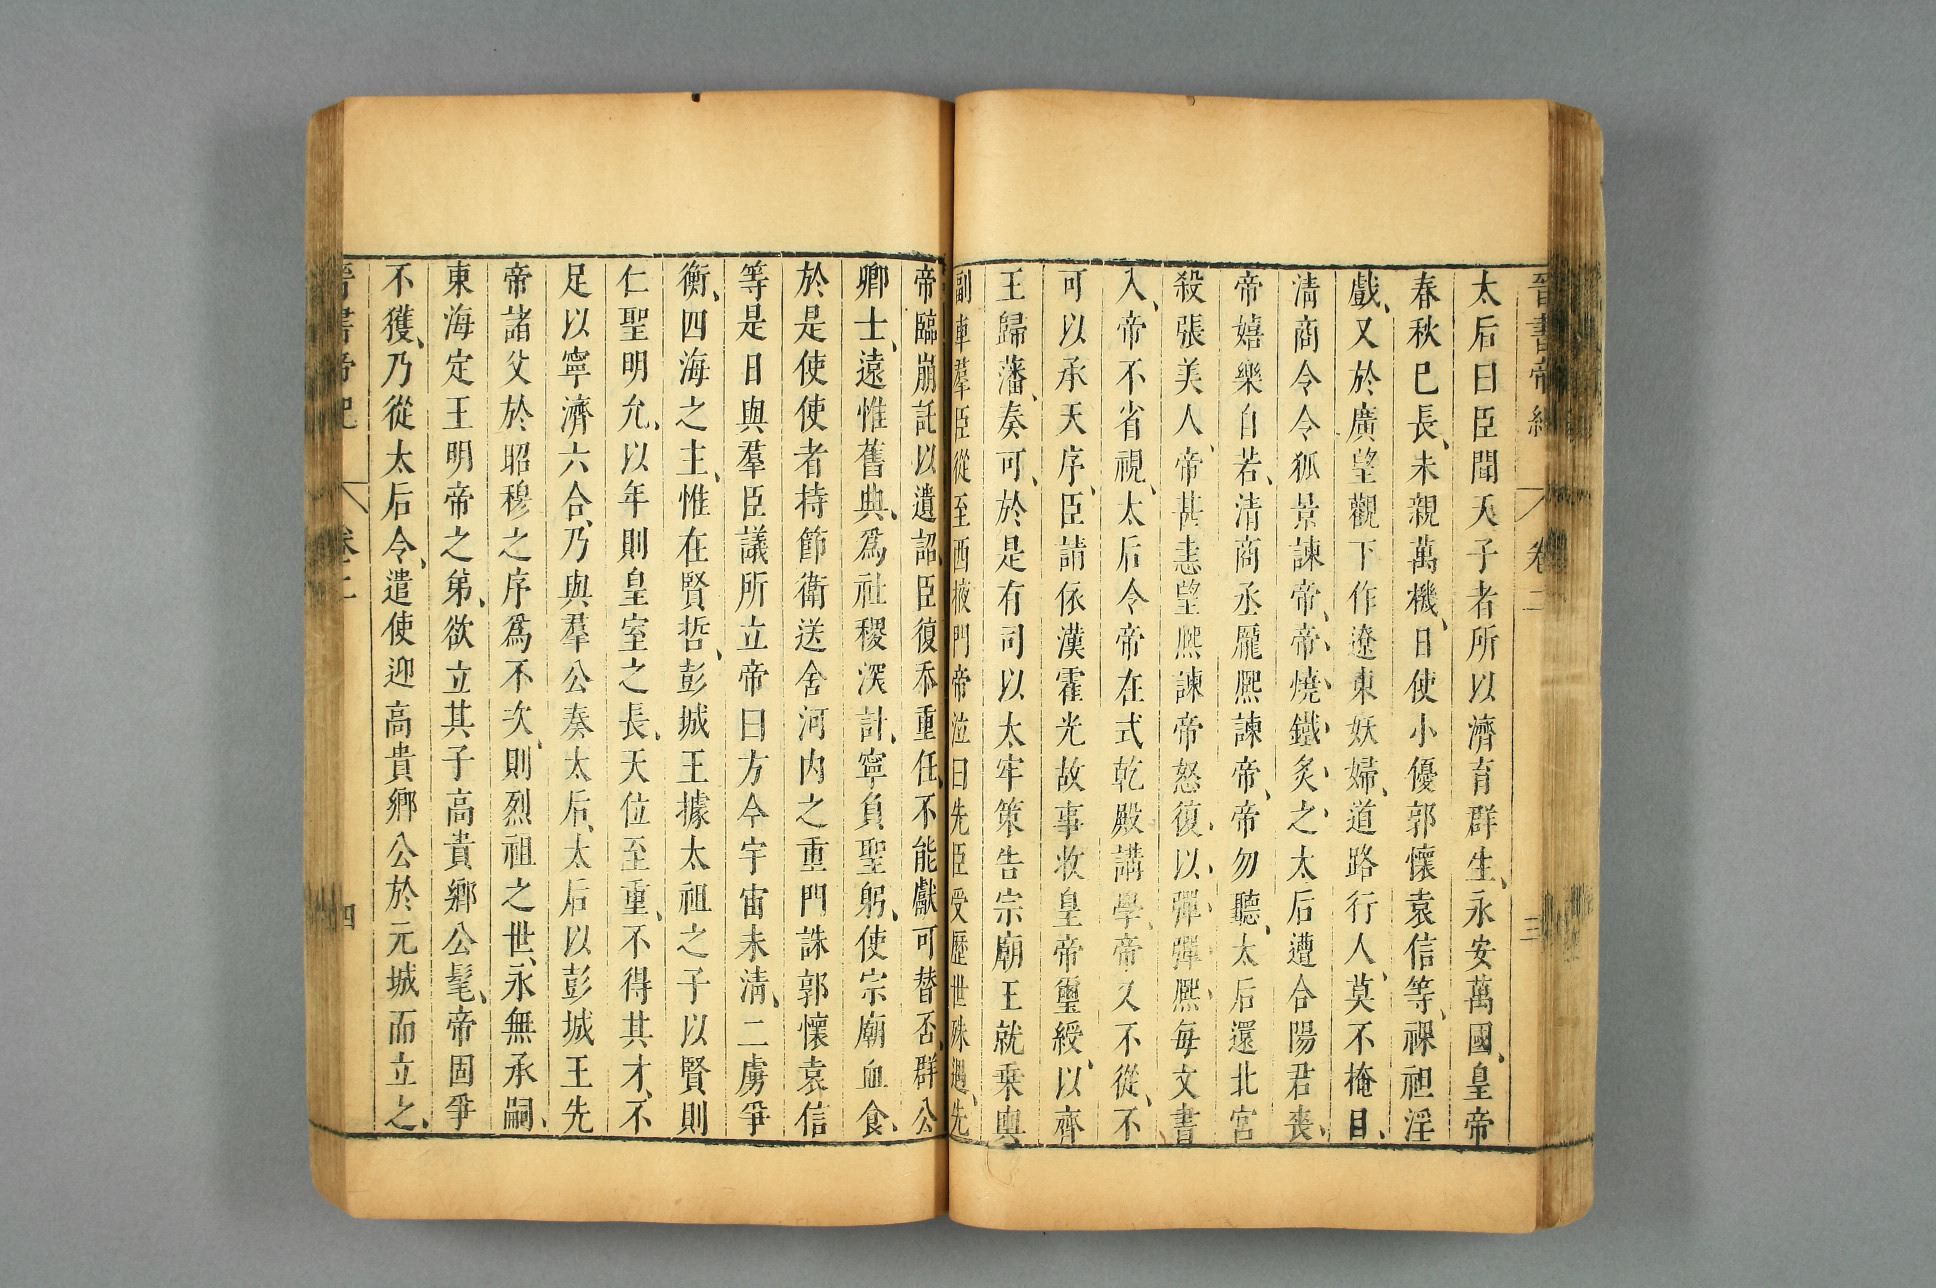 晉書帝紀 卷二 三
太后曰臣聞天子者所以濟育群生、永安萬國、皇帝
春秋已長、未親萬機、日使小優郭懷袁信等、裸袒淫
戲、又於廣望觀下作遼東妖婦、道路行人、莫不掩目、
清商令令狐景諫帝、帝燒鐵炙之、太后遭合陽君喪、
帝嬉樂自若、清商丞龎熙諫帝、帝勿聽、太后還北宮
殺張美人、帝甚恚望熙諫帝怒復以彈彈熙每文書
入、帝不省視、太后令帝在式乾殿講學、帝又不從、不
可以承天序、臣請依漢霍光故事收皇帝璽綬、以齊
王歸藩、奏可、於是有司以太牢策告宗廟王就乗輿
副車羣臣從至西掖門帝泣曰先臣受歷世殊遇、先
帝臨崩託以遺詔、臣復忝重任、不能獻可替否、群公
卿士、遠惟舊典、爲社稷深計、寧負聖躬、使宗廟血食、
於是使使者持節衛送舍河内之重門誅郭懷袁信
等是日與羣臣議所立帝曰方今宇宙未清、二虜爭
衡、四海之主、惟在賢哲、彭城王據太祖之子以賢則
仁聖明允、以年則皇室之長、天位至重、不得其才、不
足以寧濟六合、乃與羣公奏太后、太后以彭城王先
帝諸父於昭穆之序爲不次、則烈祖之世、永無承嗣、
東海定王明帝之弟、欲立其子高貴鄉公髦、帝固爭
不獲、乃從太后令、遣使迎高貴鄉公於元城而立之、
晉書帝紀 卷二 四